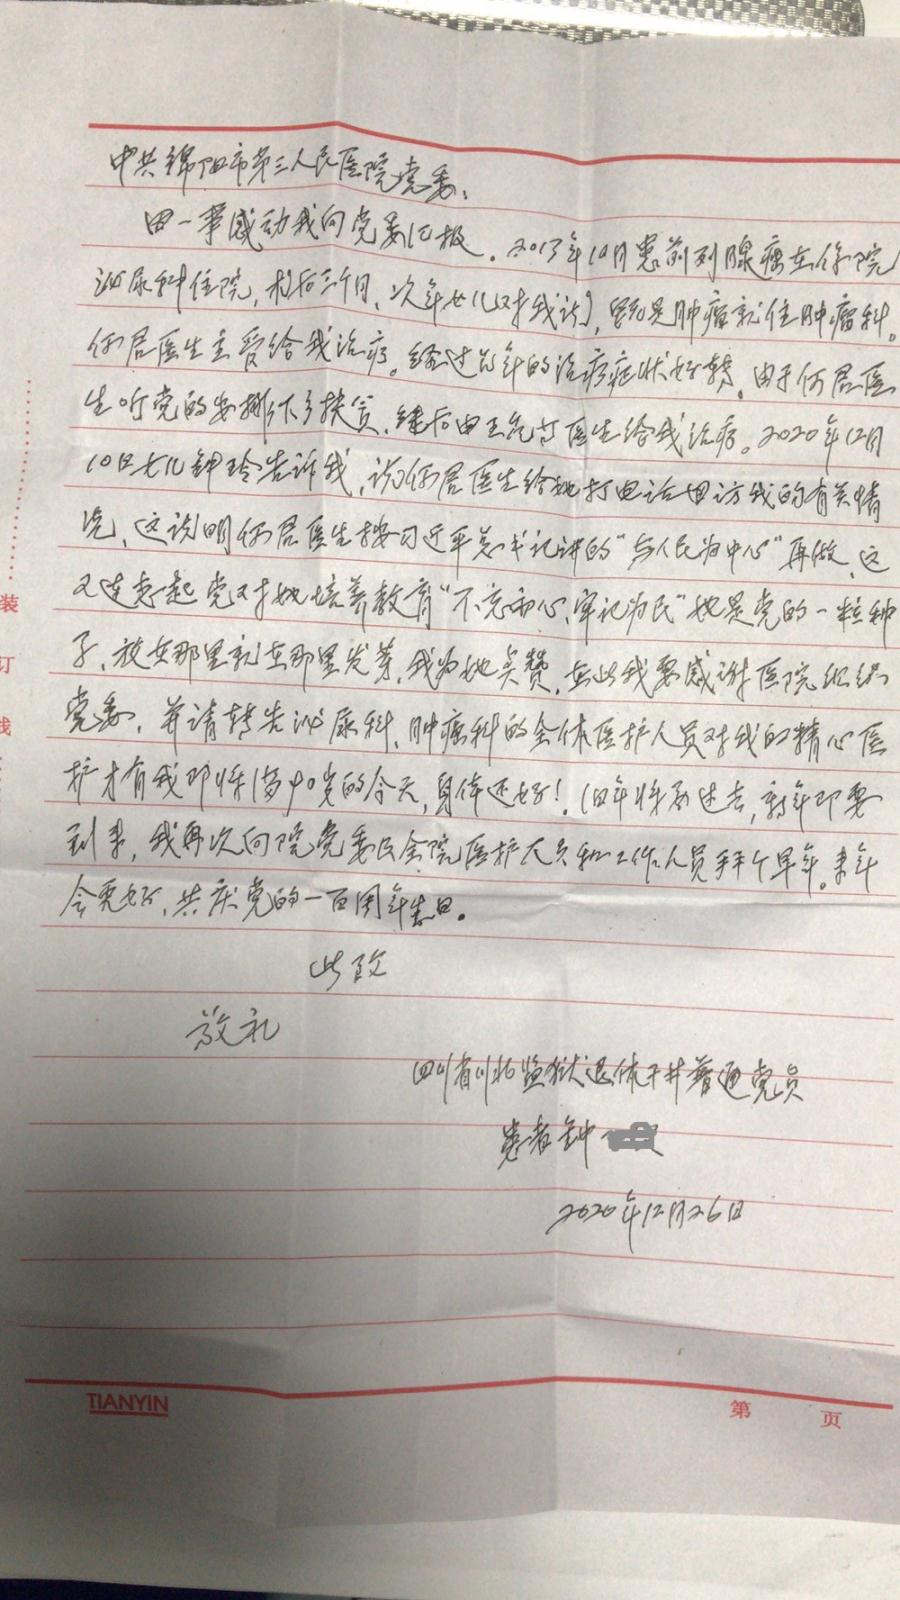 中共绵阳市第三人民医院党委:
由一事感动我向党委汇报。2013年10月患前列腺癌在你院
泌尿科住院,三个月、次年女儿对我讲,既是肿瘤就住肿瘤科。
何居医生主管给我治疗。经过几年的治疗症状好转,由于何居医
生听党的安排下乡扶贫、继后由医生给我治病。2020年12月
10日女儿钟玲告诉我,说何居医生给她打电话回访我的有关情
况,这说明何居医生按习近平总书记讲的“为人民为中心”再做,这
又连想起党对她培养教育“不忘初心、牢记为民”她是党的一粒种
子,放在那里就在那里发芽,我为她点赞,在此我要感谢医院组织
党委,并请转告泌尿科、肿瘤科的全体医护人员对我的精心医
护才有我即将满90岁的今天,身体还好!旧年将要过去,新年即要
到来,我再次向院党委及全院医护人员和工作人员拜个早年。来年
会更好,共庆党的一百周年生日。
此致
敬礼
四川省川北监狱退休干井普通党员
患者钟
2020年12月26日
装
订
线
TIANYIN
第 页